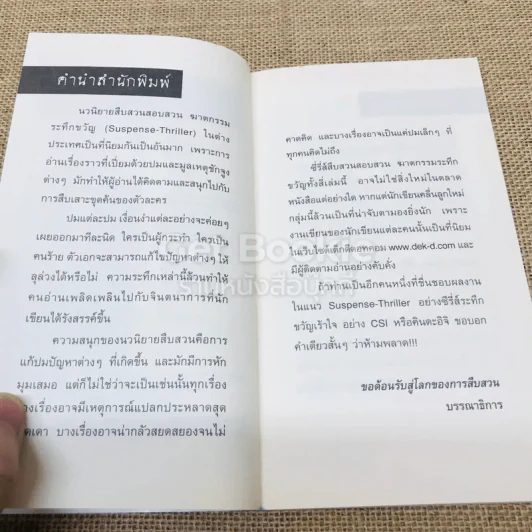 คำนำสำนักพิมพ์
นวนิยายสืบสวนสอบสวน ฆาตกรรม
ระทึกขวัญ (Suspense-Thriller) ในต่าง
ประเทศเป็นที่นิยมกันเป็นอันมาก เพราะการ
อ่านเรื่องราวที่เปี่ยมด้วยปมและมูลเหตุชักจูง
ต่างๆ มักทำให้ผู้อ่านได้คิดตามและสนุกไปกับ
การสืบเสาะขุดค้นของตัวละคร
ปมแต่ละปม เงื่อนงำแต่ละอย่างจะค่อยๆ
เผยออกมาทีละนิด ใครเป็นผู้กระทำ ใครเป็น
คนร้าย ตัวเอกจะสามารถแก้ไขปัญหาต่างๆ ให้
ลุล่วงได้หรือไม่ ความระทึกเหล่านี้ล้วนทำให้
คนอ่านเพลิดเพลินไปกับจินตนาการที่นัก
เขียนได้รังสรรค์ขึ้น
ความสนุกของนวนิยายสืบสวนคือการ
แก้ปมปัญหาต่างๆ ที่เกิดขึ้น และมักมีการหัก
มุมเสมอ แต่ก็ไม่ใช่ว่าจะเป็นเช่นนั้นทุกเรื่อง
บางเรื่องอาจมีเหตุการณ์แปลกประหลาดสุด
เดา บางเรื่องอาจน่ากลัวสยดสยองจนไม่
คาดคิด และบางเรื่องอาจเป็นแค่ปมเล็กๆ ที่
ทุกคนคิดไม่ถึง
ซีรี่ส์สืบสวนสอบสวน ฆาตกรรมระทึก
ขวัญทั้งสี่เล่มนี้ อาจไม่ใช่สิ่งใหม่ในตลาด
หนังสือแต่อย่างใด หากแต่นักเขียนคลื่นลูกใหม่
กลุ่มนี้ล้วนเป็นที่น่าจับตามองยิ่งนัก เพราะ
งานเขียนของนักเขียนแต่ละคนนั้นเป็นที่นิยม
ในเว็บไซต์เด็กดีดอทคอม www.dek-d.com และ
มีผู้ติดตามอ่านอย่างคับคั่ง
ถ้าท่านเป็นอีกคนหนึ่งที่ชื่นชอบผลงาน
ในแนว Suspense-Thriller อย่างซีรี่ส์ระทึก
ขวัญเร้าใจ อย่าง CSI หรือคินดะอิจิ ขอบอก
คำเดียวสั้นๆ ว่าห้ามพลาด!!!
ขอต้อนรับสู่โลกของการสืบสวน
บรรณาธิการ